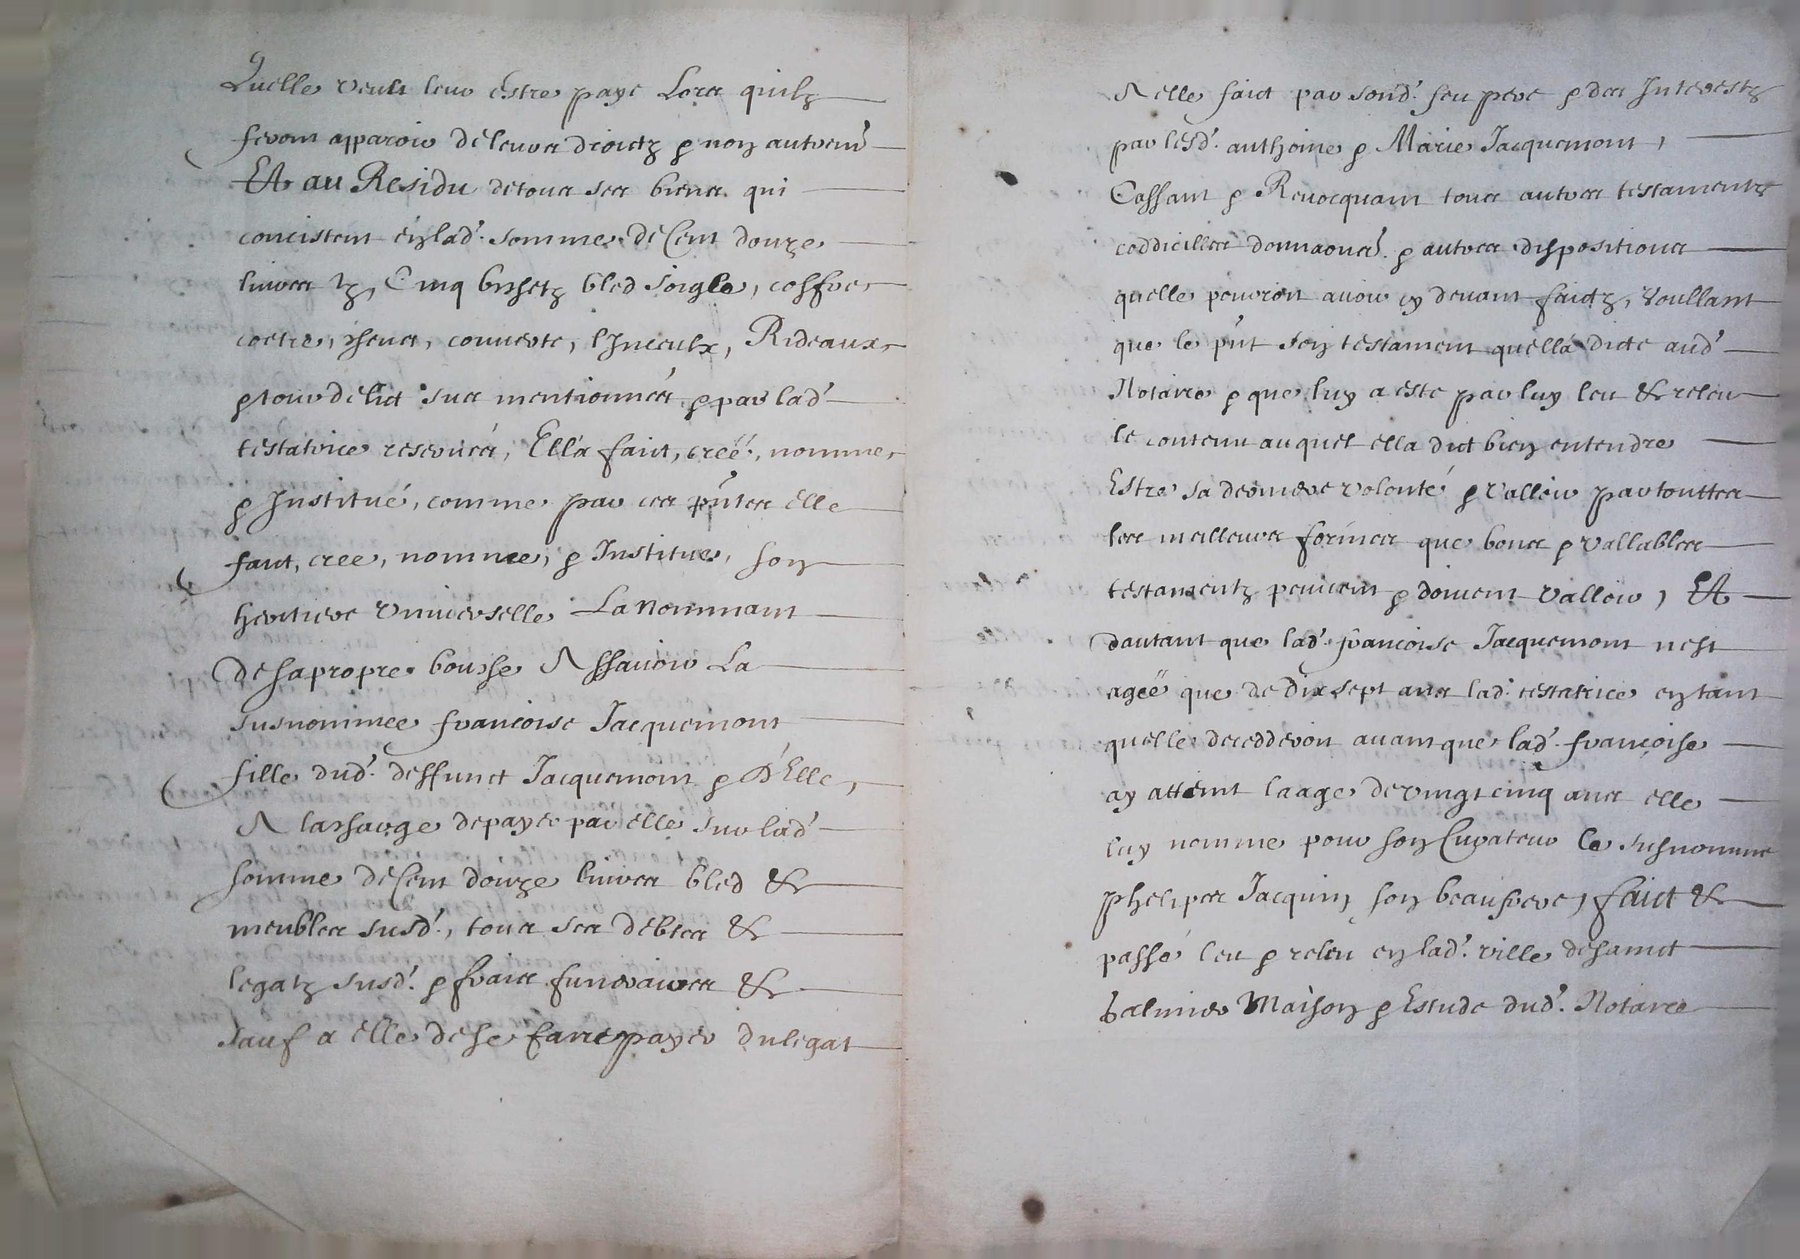 Quelle veult leur estre paye Lors quilz
feront apparoir de leurs droictz & non autremt
Et au Residu de tous ses biens qui
concistent en lad. somme de Cent douze
livres tz, Cinq bischetz bled soigle, coffre
coetre, chevet, couverte, linceulx, Rideaux
& tour de lict sus mentionnés & par lad.
testatrice reservés, Ell'a faict, creé, nommé
& Institué, comme par ces pntes elle
faict, cree, nomme, & Institue, son
heritiere universelle La nommant
de sa propre bousche Assavoir La
susnommee francoise Jacquemont
fille dud. deffunct Jacquemont & D'Elle,
A la charge de payer par elle sur lad.
somme de Cent douze livres bled &
meubles susd., tous ses debtes &
legatz susd. & frais funeraires &
sauf a elle de se faire payer du legat
A elle faict par sond. feu pere & des Interestz
par lesd. anthoine & Marie Jacquemont,
Cassant & Revocquant tous autres testamentz
coddicilles donnaons. & autres dispositions
quelle pourroit avoir cy devant faictz, Voullant
que le pnt son testament quell'a dicté aud.
Notaire & que luy a esté par luy leu & releu
le contenu auquel ell'a dict bien entendre
Estre sa derniere volonté & valloir par touttes
les meilleures formes que bons & vallables
testamentz peuvent & doivent valloir, Et
dautant que lad. francoise Jacquemont nest
ageë que de Dix sept ans lad. testatrice en tant
quelle decedderoit avant que lad. francoise
ay atteint laage de vingt cinq ans elle
luy nomme pour son Curateur le susnommé
phelipes Jacquin son beaufrere, faict &
passé leu & releu en lad. ville de sainct
Galmier Maison & Estude dud. Notaire